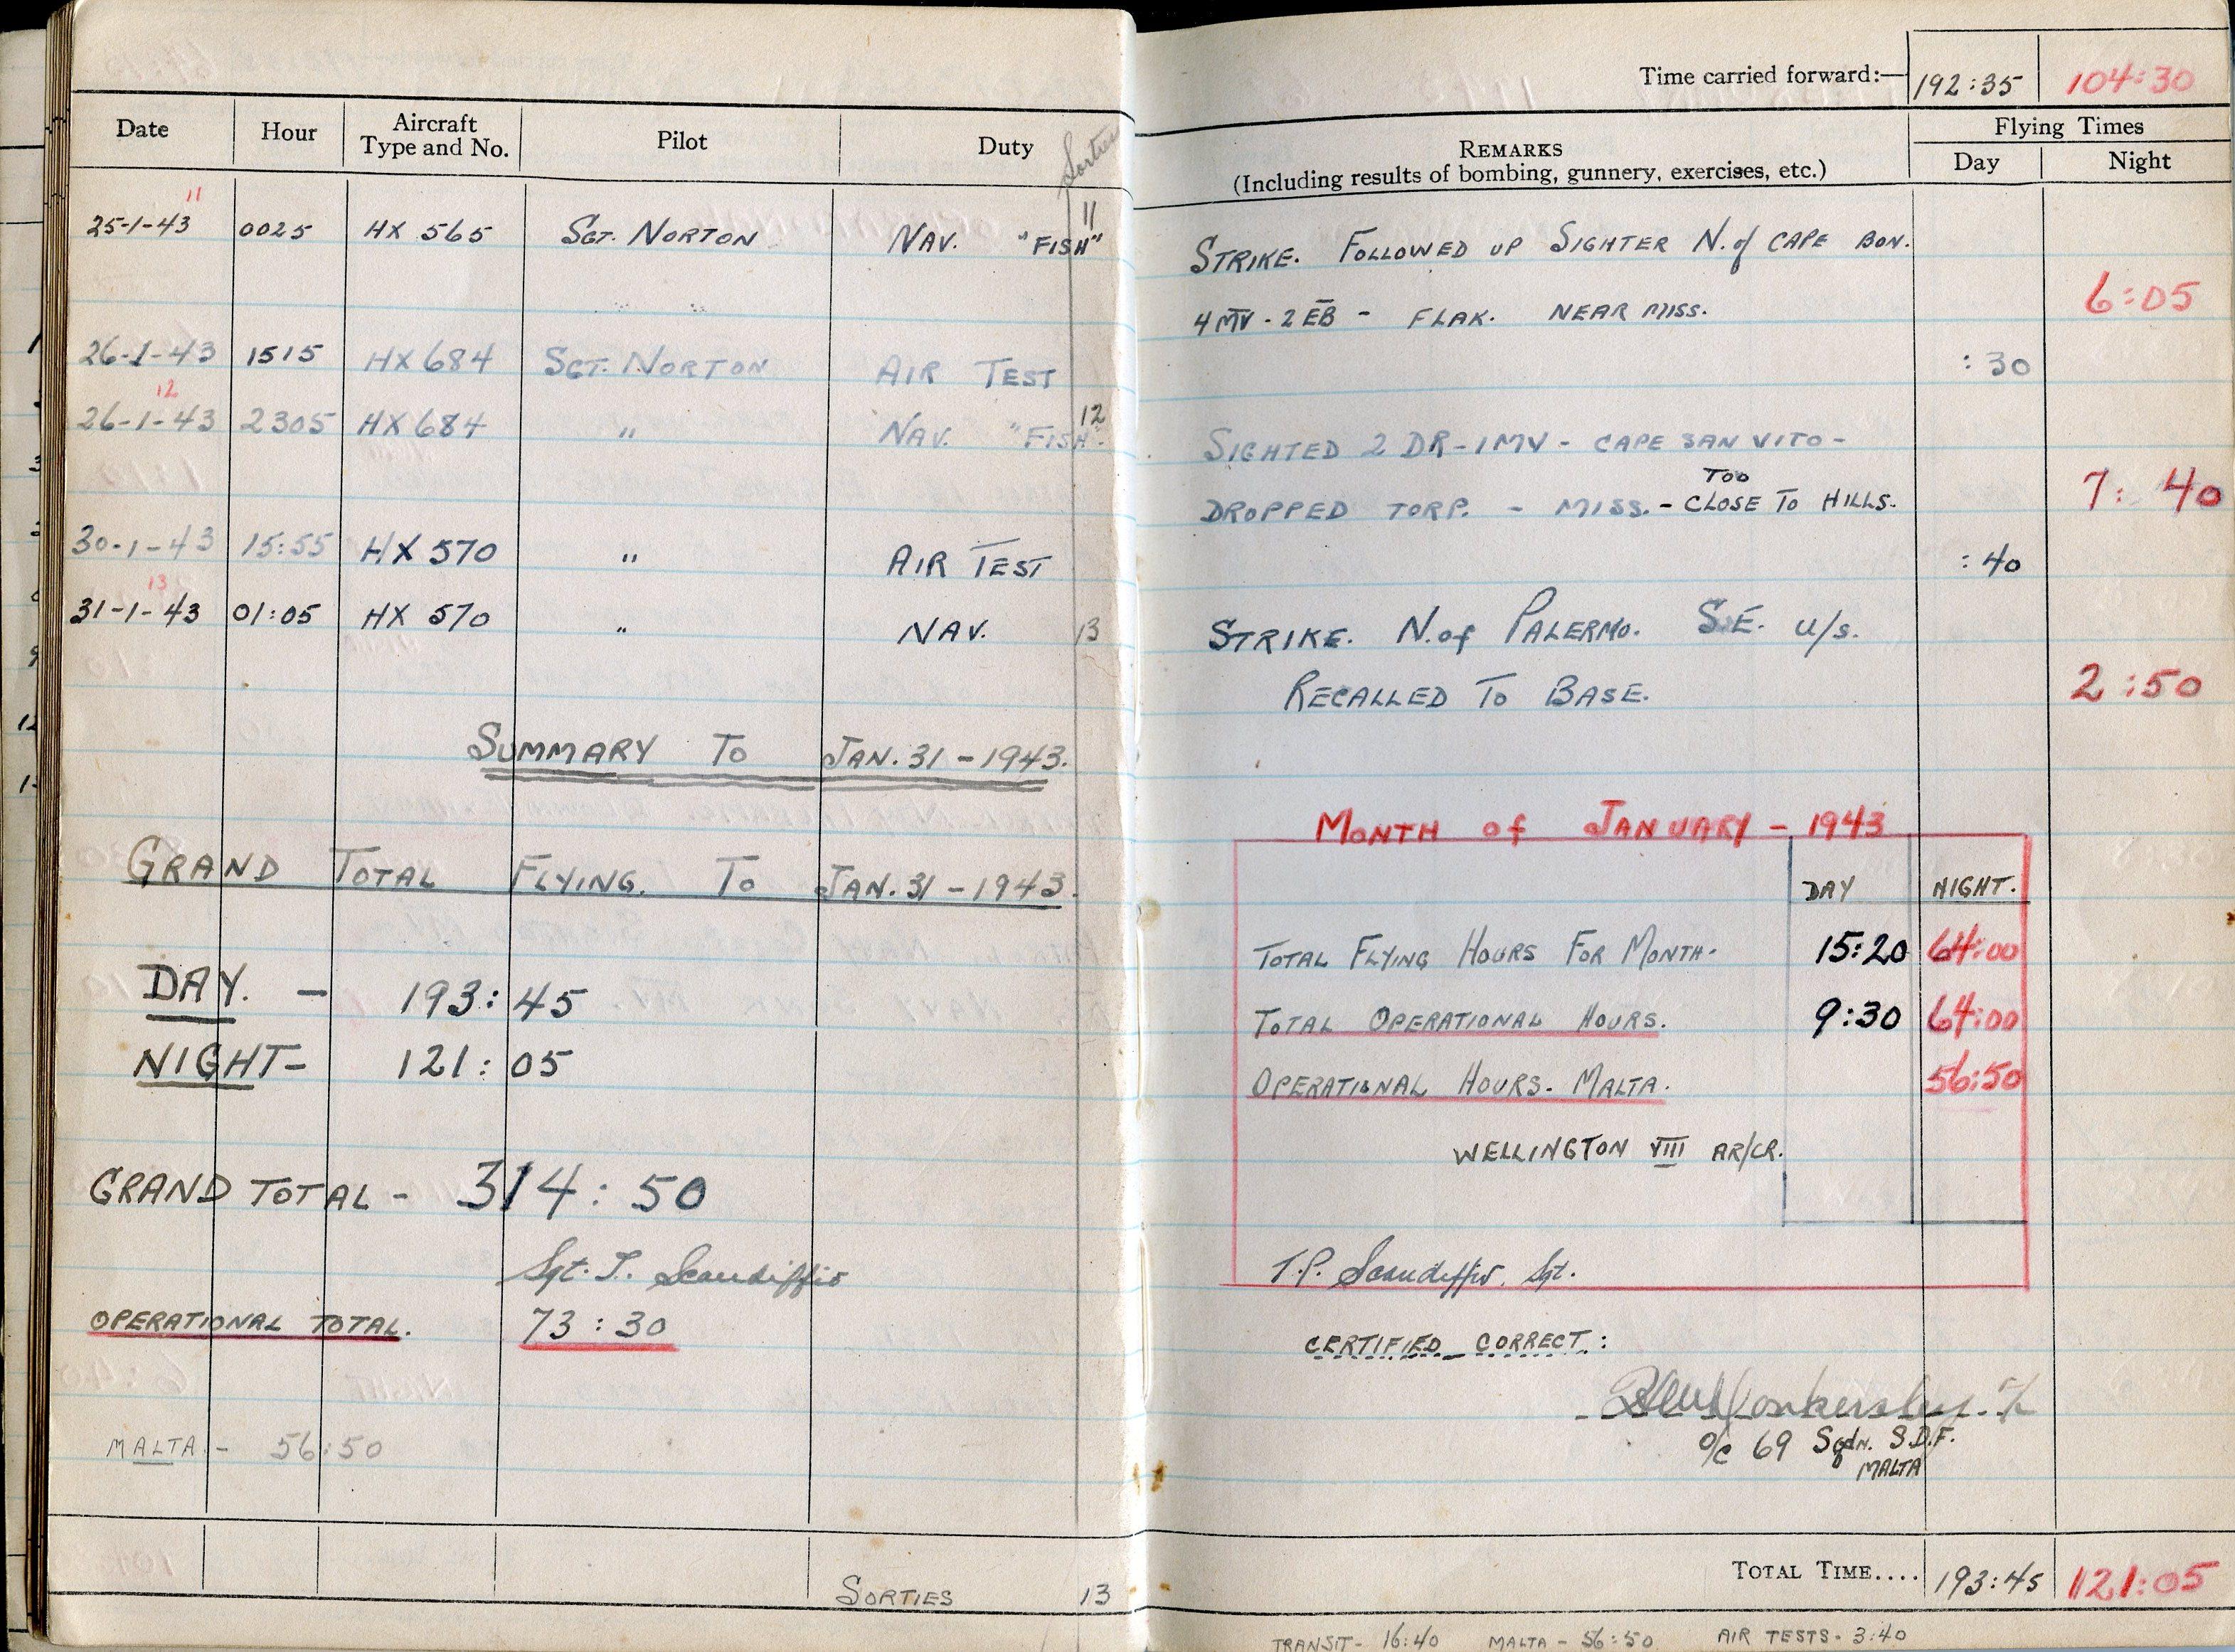 Date Hour Aircraft Type and No. Pilot Duty Sorties
11
25-1-43 0025 HX 565 SGT. NORTON NAV. "FISH" 11
26-1-43 1515 HX 684 SGT. NORTON AIR TEST
12
26-1-43 2305 HX 684 " NAV. "FISH". 12
30-1-43 15:55 HX 570 " AIR TEST
13
31-1-43 01:05 HX 570 " NAV. 13
SUMMARY TO JAN. 31 - 1943.
GRAND TOTAL FLYING. TO JAN. 31 - 1943.
DAY. - 193:45
NIGHT - 121:05
GRAND TOTAL - 314:50
Sgt. T. Scandiffio
OPERATIONAL TOTAL. 73:30
MALTA. - 56:50
SORTIES 13
Time carried forward:— 192:35 104:30
REMARKS Flying Times
(Including results of bombing, gunnery, exercises, etc.) Day Night
STRIKE. FOLLOWED UP SIGHTER N. of CAPE BON.
4 MV - 2 EB - FLAK. NEAR MISS. 6:05
:30
SIGHTED 2 DR - 1 MV - CAPE SAN VITO -
DROPPED TORP. - MISS. - TOO CLOSE TO HILLS. 7:40
:40
STRIKE. N. of PALERMO. S.E. u/s.
RECALLED TO BASE. 2:50
MONTH of JANUARY - 1943
DAY NIGHT.
TOTAL FLYING HOURS FOR MONTH. 15:20 64:00
TOTAL OPERATIONAL HOURS. 9:30 64:00
OPERATIONAL HOURS. MALTA. 56:50
WELLINGTON VIII AR/CR.
T.P. Scandiffio. Sgt.
CERTIFIED CORRECT:
O/C 69 Sqdn. S.D.F.
MALTA
TOTAL TIME.... 193:45 121:05
TRANSIT - 16:40 MALTA - 56:50 AIR TESTS - 3:40